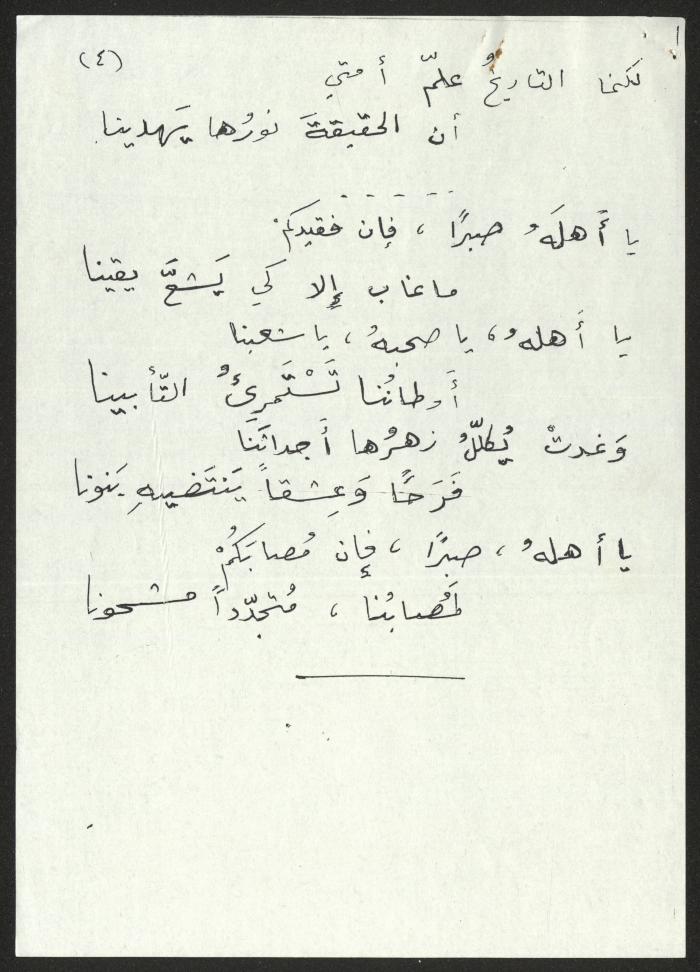 (٤)
لكنما التاريخُ علمّ أمتي
أن الحقيقةَ نورُها يَهدينا
- - - - - -
يا أَهلَهُ صبرًا ، فإن فقيدكمْ
ما غاب إلا كي يَشعَّ يقينا
يا أَهلهُ ، يا صحبهُ ، يا شعبنا
أَوطانُنا تَسْتَمرِئُ التّأبينا
وَغدتْ يُكللُّ زهرُها أَجداثَنَا
فَرَحًا وَعِشقاً يَنتَضيهِ بَنونا
يا أهلهُ ، صبرًا ، فإن مُصابَكُمْ
لَمُصابُنا ، مُتجدّداً مشحونا